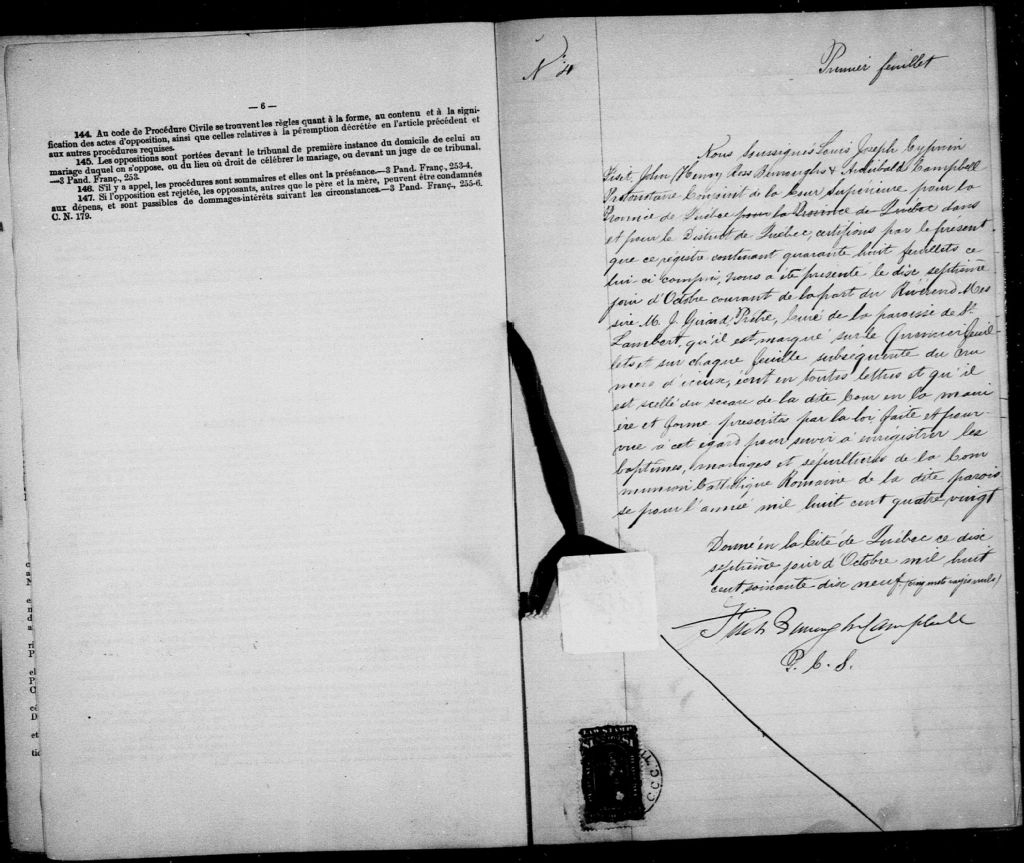 — 6 —
144. Au code de Procédure Civile se trouvent les règles quant à la forme, au contenu et à la signi-
fication des actes d'opposition, ainsi que celles relatives à la péremption décrétée en l'article précédent et
aux autres procédures requises.
145. Les oppositions sont portées devant le tribunal de première instance du domicile de celui au
mariage duquel on s'oppose, ou du lieu où droit de célébrer le mariage, ou devant un juge de ce tribunal.
—3 Pand. Franç., 253.
146. S'il y a appel, les procédures sont sommaires et elles ont la préséance.—3 Pand. Franç., 253-4.
147. Si l'opposition est rejetée, les opposants, autres que le père et la mère, peuvent être condamnés
aux dépens, et sont passibles de dommages-intérêts suivant les circonstances.—3 Pand. Franç., 255-6.
C. N. 179.
Premier feuillet
Nous Soussignés Louis Joseph Cyprien
Fiset, John Henry Ross Burroughs & Archibald Campbell
Protonotaire Conjoint de la Cour Supérieure pour la
Province de Québec pour la Province de Québec dans
et pour le District de Québec, certifions par le présent
que ce registre contenant quarante huit feuillets ce
lui-ci compris, nous a été présenté le dix septième
jour d'Octobre courant de la part du Révérend Mes
sire M. J. Girard, Prêtre, Curé de la paroisse de St.
Lambert, qu'il est marqué sur le premier feuil
lets et sur chaque feuille subséquente du nu
mero d'iceux, écrit en toutes lettres et qu'il
est scellé du sceau de la dite Cour en la mani
ère et forme prescrites par la loi, faite et pour-
vue à cet égard pour servir à enrégistrer les
baptêmes, mariages et sépultures de la Com
munion Catholique Romaine de la dite parois
se pour l'année mil huit cent quatre vingt
Donné en la Cité de Québec ce dix
septième jour d'Octobre mil huit
cent soixante dix neuf. (cinq mots rayés nuls)
Fiset Burroughs Campbell
P. C. S.
LAW STAMP
$1 $1